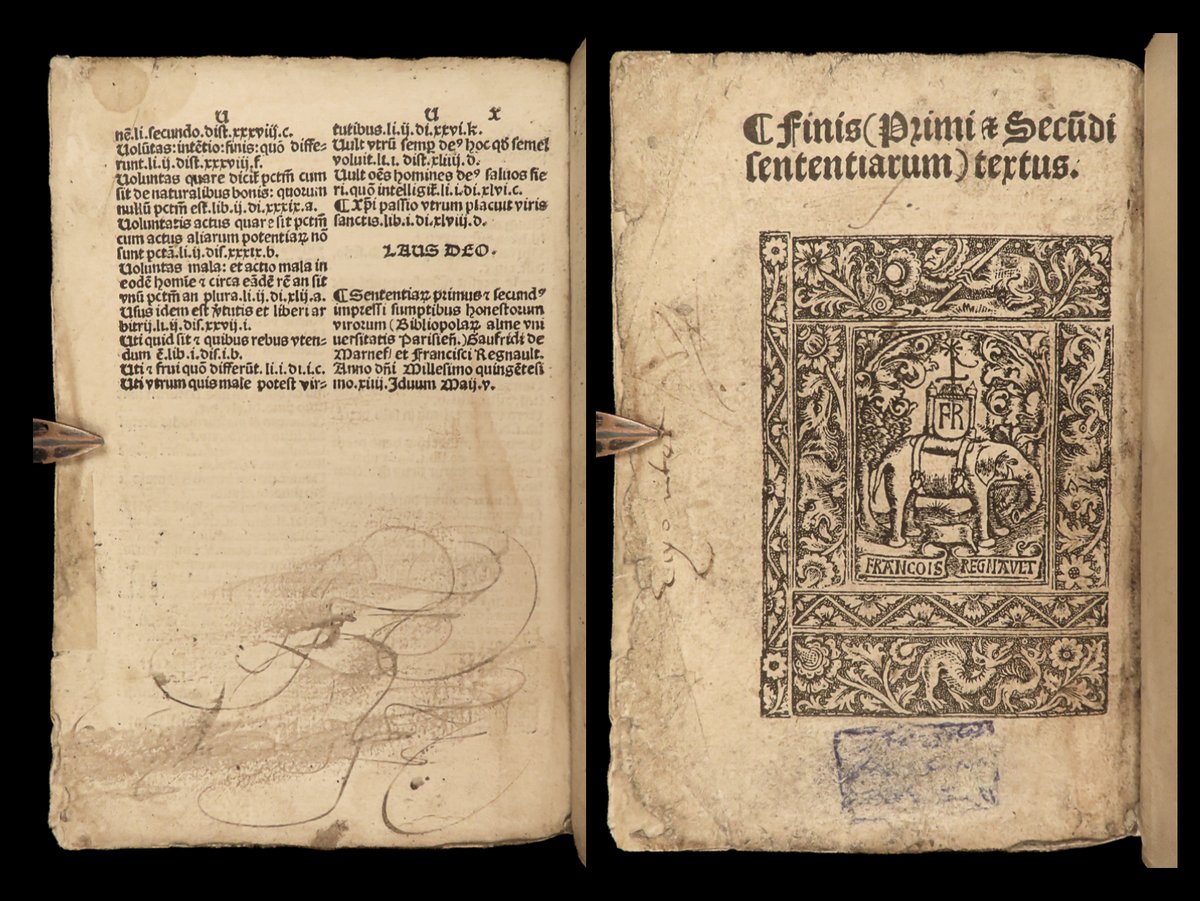 U
nē.li.secundo.dist.xxxviij.c.
Volūtas: intētio: finis: quō differunt.li.ij.dist.xxxviij.f.
Voluntas quare dicit᷑ pctm̄ cum
sit de naturalibus bonis: quorum
nullū pctm̄ est.lib.ij.di.xxxix.a.
Voluntatis actus quare sit pctm̄
cum actus aliarum potentiaꝝ nō
sunt pctā.li.ij.dis.xxxix.b.
Voluntas mala: et actio mala in
eodē homīe ⁊ circa eādē rē an sit
vnū pctm̄ an plura.li.ij.di.xlij.a.
Usus idem est v̓tutis et liberi ar
bitrij.li.ij.dis.xxvij.i.
Uti quid sit ⁊ quibus rebus vten-
dum ē.lib.i.dis.i.b.
Uti ⁊ frui quō differūt.li.i.di.i.c.
Uti vtrum quis male potest vir-
U X
tutibus.li.ij.di.xxvi.k.
Vult vtrū semp deꝰ hoc qd̓ semel
voluit.li.i. dist.xliiij.d.
Vult oēs homines deꝰ saluos fie
ri.quō intelligit᷑.li.i.di.xlvi.c.
¶ Xp̄i passio vtrum placuit viris
sanctis.lib.i.di.xlviij.d.
LAUS DEO.
¶ Sententiaꝝ primus ⁊ secundꝰ
impressi sumptibus honestorum
virorum (Bibliopolaꝝ alme vni
uersitatis Parisien̄.) Gaufridi de
Marnef/ et Francisci Regnault.
Anno dn̄i Millesimo quingētesi
mo.xiiij. Iduum Maij.v.
¶ Finis (Primi ⁊ Secūdi
sententiarum) textus.
FR
FRANCOIS REGNAULT